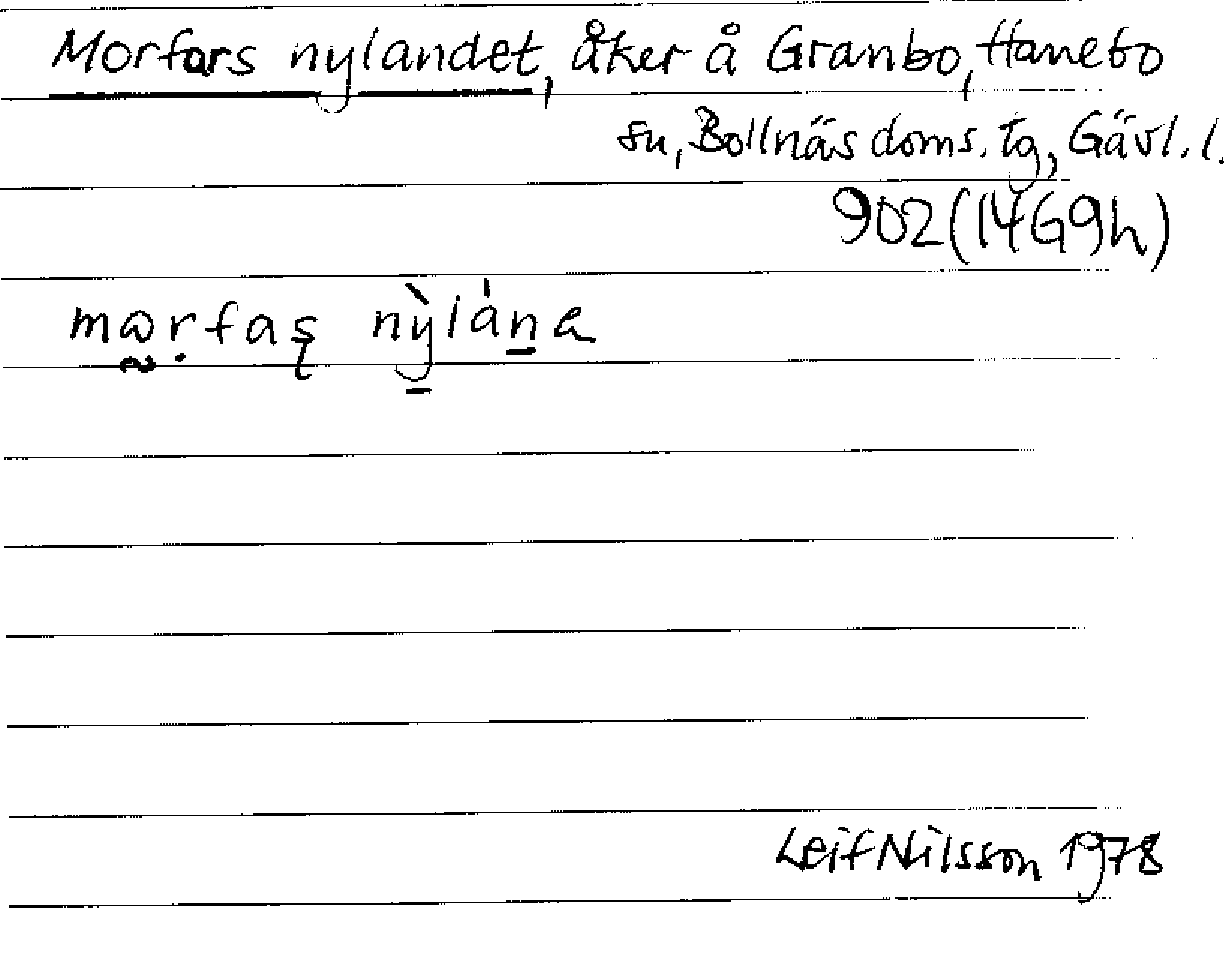 Morfars nylandet, åker å Granbo, Hanebo
sn, Bollnäs doms. tg, Gävl. l.
902 (14G9h)
mɷrfaʂ nỳlána
Leif Nilsson 1978